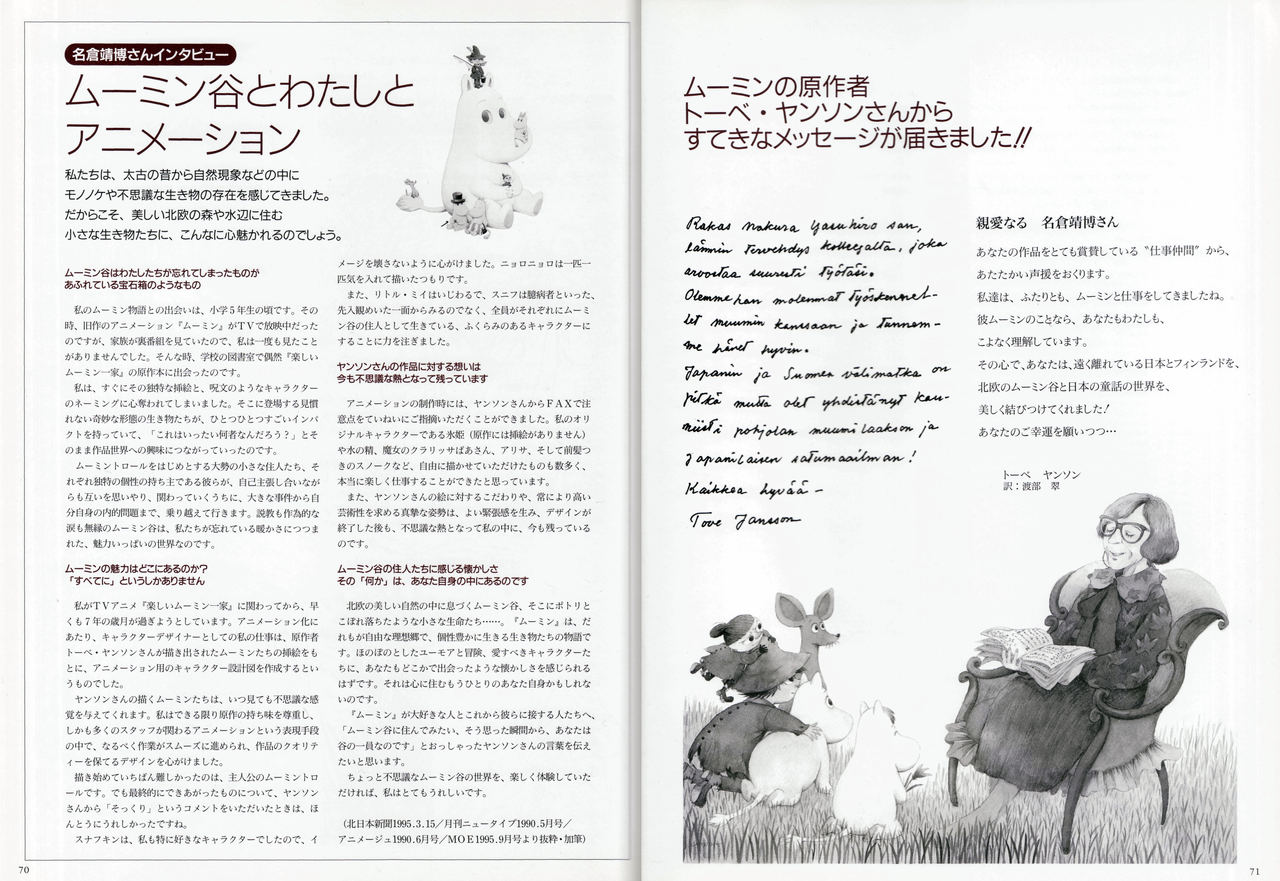 名倉靖博さんインタビュー
ムーミン谷とわたしと
アニメーション
私たちは、太古の昔から自然現象などの中に
モノノケや不思議な生き物の存在を感じてきました。
だからこそ、美しい北欧の森や水辺に住む
小さな生き物たちに、こんなに心魅かれるのでしょう。
ムーミン谷はわたしたちが忘れてしまったものが
あふれている宝石箱のようなもの
私のムーミン物語との出会いは、小学5年生の頃です。その
時、旧作のアニメーション『ムーミン』がTVで放映中だった
のですが、家族が裏番組を見ていたので、私は一度も見たこと
がありませんでした。そんな時、学校の図書室で偶然『楽しい
ムーミン一家』の原作本に出会ったのです。
私は、すぐにその独特な挿絵と、呪文のようなキャラクター
のネーミングに心奪われてしまいました。そこに登場する見慣
れない奇妙な形態の生き物たちが、ひとつひとつすごいインパ
クトを持っていて、「これはいったい何者なんだろう？」とそ
のまま作品世界への興味につながっていったのです。
ムーミントロールをはじめとする大勢の小さな住人たち、そ
れぞれ独特の個性の持ち主である彼らが、自己主張し合いなが
らも互いを思いやり、関わっていくうちに、大きな事件から自
分自身の内的問題まで、乗り越えて行きます。説教も作為的な
涙も無縁のムーミン谷は、私たちが忘れている暖かさにつつま
れた、魅力いっぱいの世界なのです。
ムーミンの魅力はどこにあるのか？
「すべてに」というしかありません
私がTVアニメ『楽しいムーミン一家』に関わってから、早
くも7年の歳月が過ぎようとしています。アニメーション化に
あたり、キャラクターデザイナーとしての私の仕事は、原作者
トーベ・ヤンソンさんが描き出されたムーミンたちの挿絵をも
とに、アニメーション用のキャラクター設計図を作成するとい
うものでした。
ヤンソンさんの描くムーミンたちは、いつ見ても不思議な感
覚を与えてくれます。私はできる限り原作の持ち味を尊重し、
しかも多くのスタッフが関わるアニメーションという表現手段
の中で、なるべく作業がスムーズに進められ、作品のクオリテ
ィーを保てるデザインを心がけました。
描き始めていちばん難しかったのは、主人公のムーミントロ
ールです。でも最終的にできあがったものについて、ヤンソン
さんから「そっくり」というコメントをいただいたときは、ほ
んとうにうれしかったですね。
スナフキンは、私も特に好きなキャラクターでしたので、イ
メージを壊さないように心がけました。ニョロニョロは一匹一
匹気を入れて描いたつもりです。
また、リトル・ミイはいじわるで、スニフは臆病者といった、
先入観めいた一面からみるのでなく、全員がそれぞれにムーミ
ン谷の住人として生きている、ふくらみのあるキャラクターに
することに力を注ぎました。
ヤンソンさんの作品に対する想いは
今も不思議な熱となって残っています
アニメーションの制作時には、ヤンソンさんからFAXで注
意点をていねいにご指摘いただくことができました。私のオリ
ジナルキャラクターである氷姫（原作には挿絵がありません）
や水の精、魔女のクラリッサばあさん、アリサ、そして前髪つ
きのスノークなど、自由に描かせていただけたものも数多く、
本当に楽しく仕事することができたと思っています。
また、ヤンソンさんの絵に対するこだわりや、常により高い
芸術性を求める真摯な姿勢は、よい緊張感を生み、デザインが
終了した後も、不思議な熱となって私の中に、今も残っている
のです。
ムーミン谷の住人たちに感じる懐かしさ
その「何か」は、あなた自身の中にあるのです
北欧の美しい自然の中に息づくムーミン谷、そこにポトリと
こぼれ落ちたような小さな生命たち……。『ムーミン』は、だ
れもが自由な理想郷で、個性豊かに生きる生き物たちの物語で
す。ほのぼのとしたユーモアと冒険、愛すべきキャラクターた
ちに、あなたもどこかで出会ったような懐かしさを感じられる
はずです。それは心に住むもうひとりのあなた自身かもしれな
いのです。
『ムーミン』が大好きな人とこれから彼らに接する人たちへ、
「ムーミン谷に住んでみたい、そう思った瞬間から、あなたは
谷の一員なのです」とおっしゃったヤンソンさんの言葉を伝え
たいと思います。
ちょっと不思議なムーミン谷の世界を、楽しく体験していた
だければ、私はとてもうれしいです。
（北日本新聞1995.3.15／月刊ニュータイプ1990.5月号／
アニメージュ1990.6月号／MOE1995.9月号より抜粋・加筆）
70
ムーミンの原作者
トーベ・ヤンソンさんから
すてきなメッセージが届きました!!
Rakas Nakura Yasuhiro san,
lämmin tervehdys kollegalta, joka
arvostaa suuresti työtäsi.
Olemmehan molemmat työskennel-
let muumin kanssaan ja tunnem-
me hänet hyvin.
Japanin ja Suomen välimatka on
pitkä mutta olet yhdistänyt kau-
niisti pohjolan muumilaakson ja
japanilaisen satumaailman!
Kaikkea hyvää –
Tove Jansson
親愛なる 名倉靖博さん
あなたの作品をとても賞賛している〝仕事仲間〟から、
あたたかい声援をおくります。
私達は、ふたりとも、ムーミンと仕事をしてきましたね。
彼ムーミンのことなら、あなたもわたしも、
こよなく理解しています。
その心で、あなたは、遠く離れている日本とフィンランドを、
北欧のムーミン谷と日本の童話の世界を、
美しく結びつけてくれました！
あなたのご幸運を願いつつ…
トーベ ヤンソン
訳：渡部 翠
71